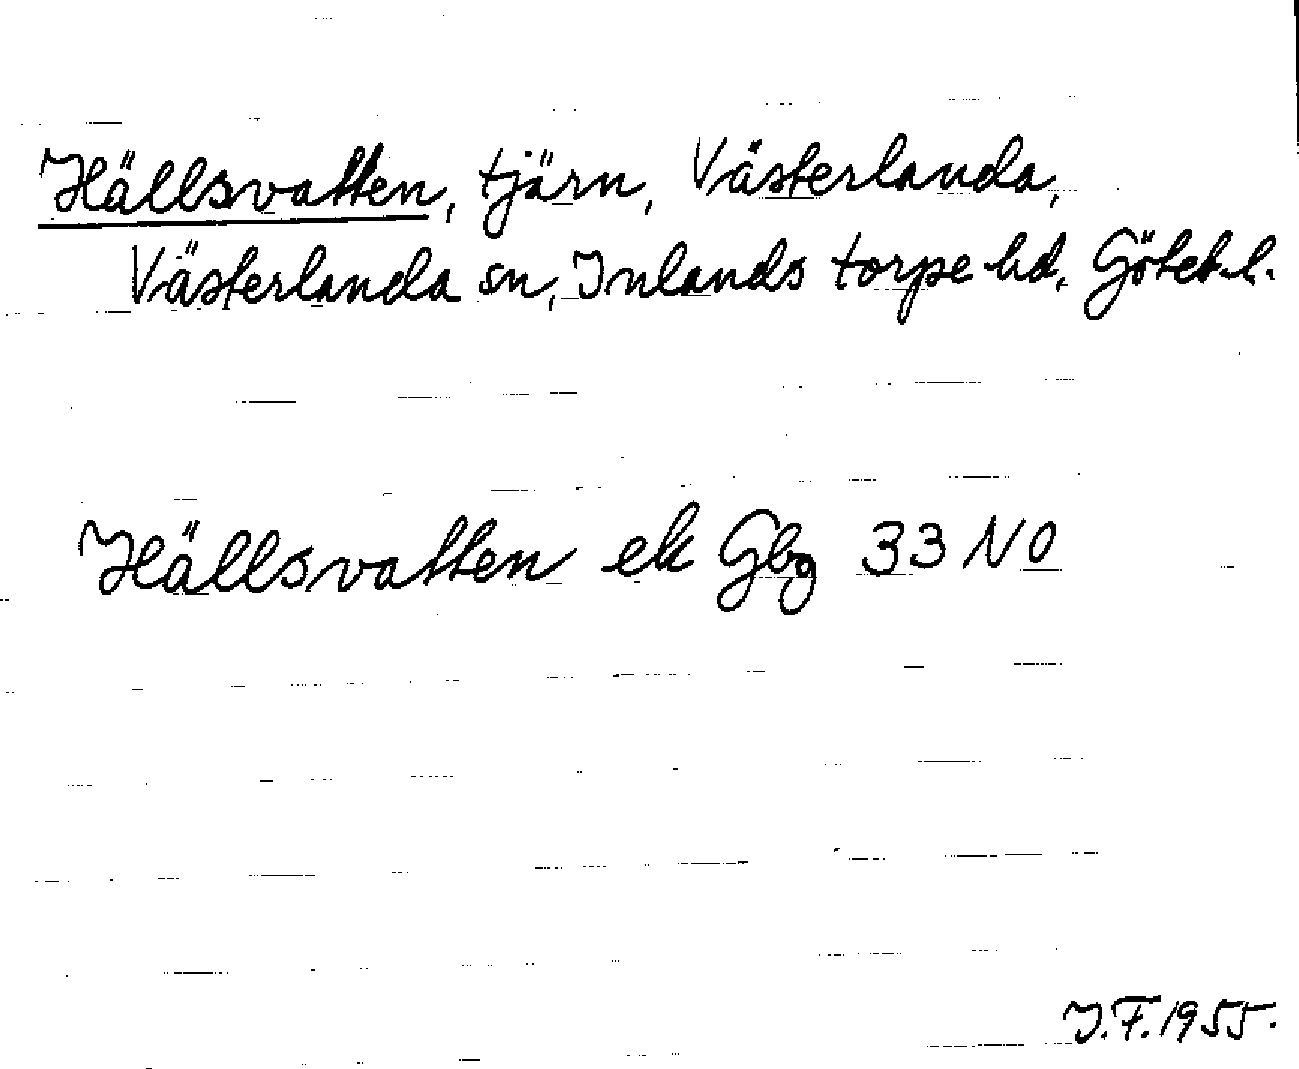 Hällsvatten, tjärn, Västerlanda,
Västerlanda sn, Inlands torpe hd, Göteb.l.
Hällsvatten ek Gbg 33 NO
I.F. 1955.